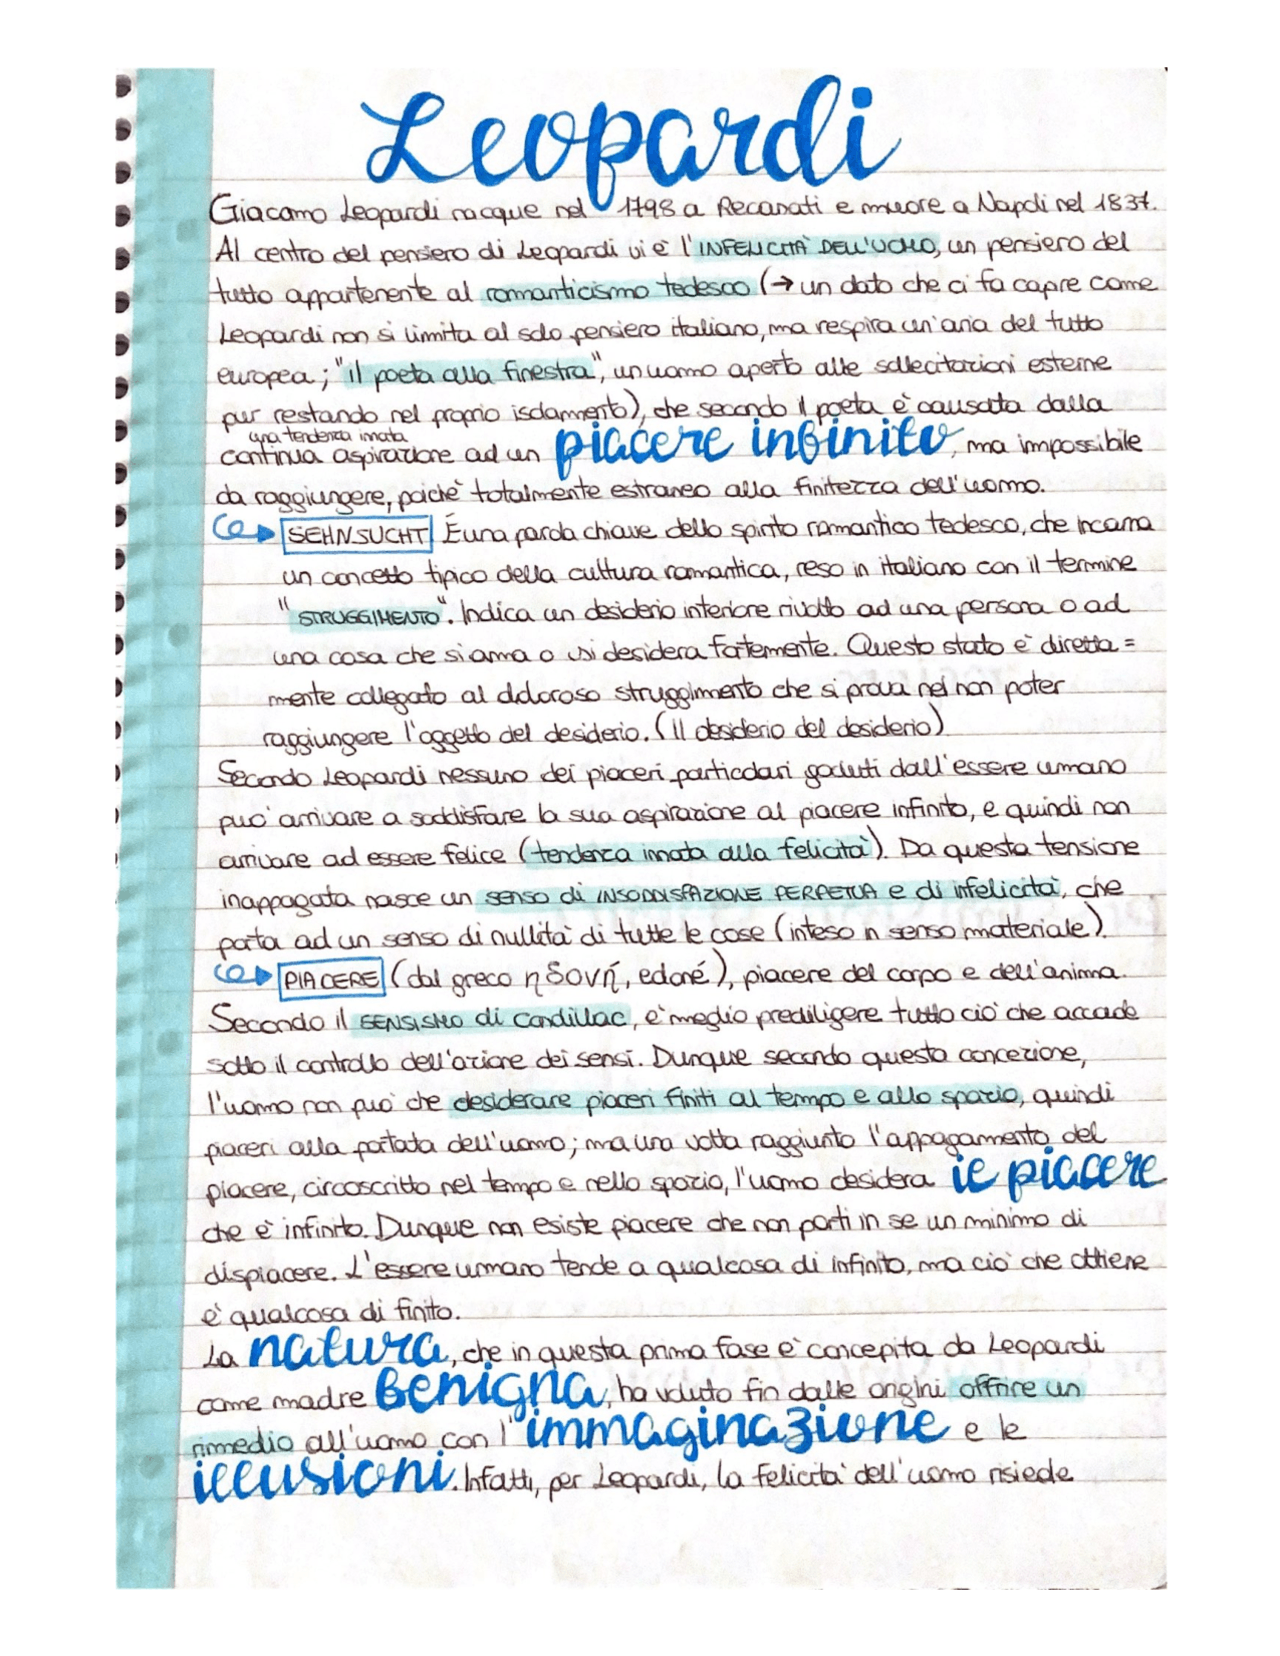 Leopardi
Giacomo Leopardi nacque nel 1798 a Recanati e muore a Napoli nel 1837.
Al centro del pensiero di Leopardi vi è l'INFELICITÀ DELL'UOMO, un pensiero del
tutto appartenente al romanticismo tedesco (→ un dato che ci fa capire come
Leopardi non si limita al solo pensiero italiano, ma respira un'aria del tutto
europea; "il poeta alla finestra", un uomo aperto alle sollecitazioni esterne
pur restando nel proprio isolamento), che secondo il poeta è causata dalla
una tendenza innata
continua aspirazione ad un piacere infinito, ma impossibile
da raggiungere, poichè totalmente estraneo alla finitezza dell'uomo.
SEHNSUCHT È una parola chiave dello spirito romantico tedesco, che incarna
un concetto tipico della cultura romantica, reso in italiano con il termine
"STRUGGIMENTO". Indica un desiderio interiore rivolto ad una persona o ad
una cosa che si ama o si desidera fortemente. Questo stato è diretta=
mente collegato al doloroso struggimento che si prova nel non poter
raggiungere l'oggetto del desiderio. (Il desiderio del desiderio)
Secondo Leopardi nessuno dei piaceri particolari goduti dall'essere umano
può arrivare a soddisfare la sua aspirazione al piacere infinito, e quindi non
arrivare ad essere felice (tendenza innata alla felicità). Da questa tensione
inappagata nasce un senso di INSODDISFAZIONE PERPETUA e di infelicità, che
porta ad un senso di nullità di tutte le cose (inteso in senso materiale).
PIACERE (dal greco ηδονή, edoné), piacere del corpo e dell'anima.
Secondo il SENSISMO di Condillac, è meglio prediligere tutto ciò che accade
sotto il controllo dell'azione dei sensi. Dunque secondo questa concezione,
l'uomo non può che desiderare piaceri finiti al tempo e allo spazio, quindi
piaceri alla portata dell'uomo; ma una volta raggiunto l'appagamento del
piacere, circoscritto nel tempo e nello spazio, l'uomo desidera il piacere
che è infinito. Dunque non esiste piacere che non porti in se un minimo di
dispiacere. L'essere umano tende a qualcosa di infinito, ma ciò che ottiene
è qualcosa di finito.
La natura, che in questa prima fase è concepita da Leopardi
come madre benigna, ha voluto fin dalle origini offrire un
rimedio all'uomo con l'immaginazione e le
illusioni. Infatti, per Leopardi, la felicità dell'uomo risiede